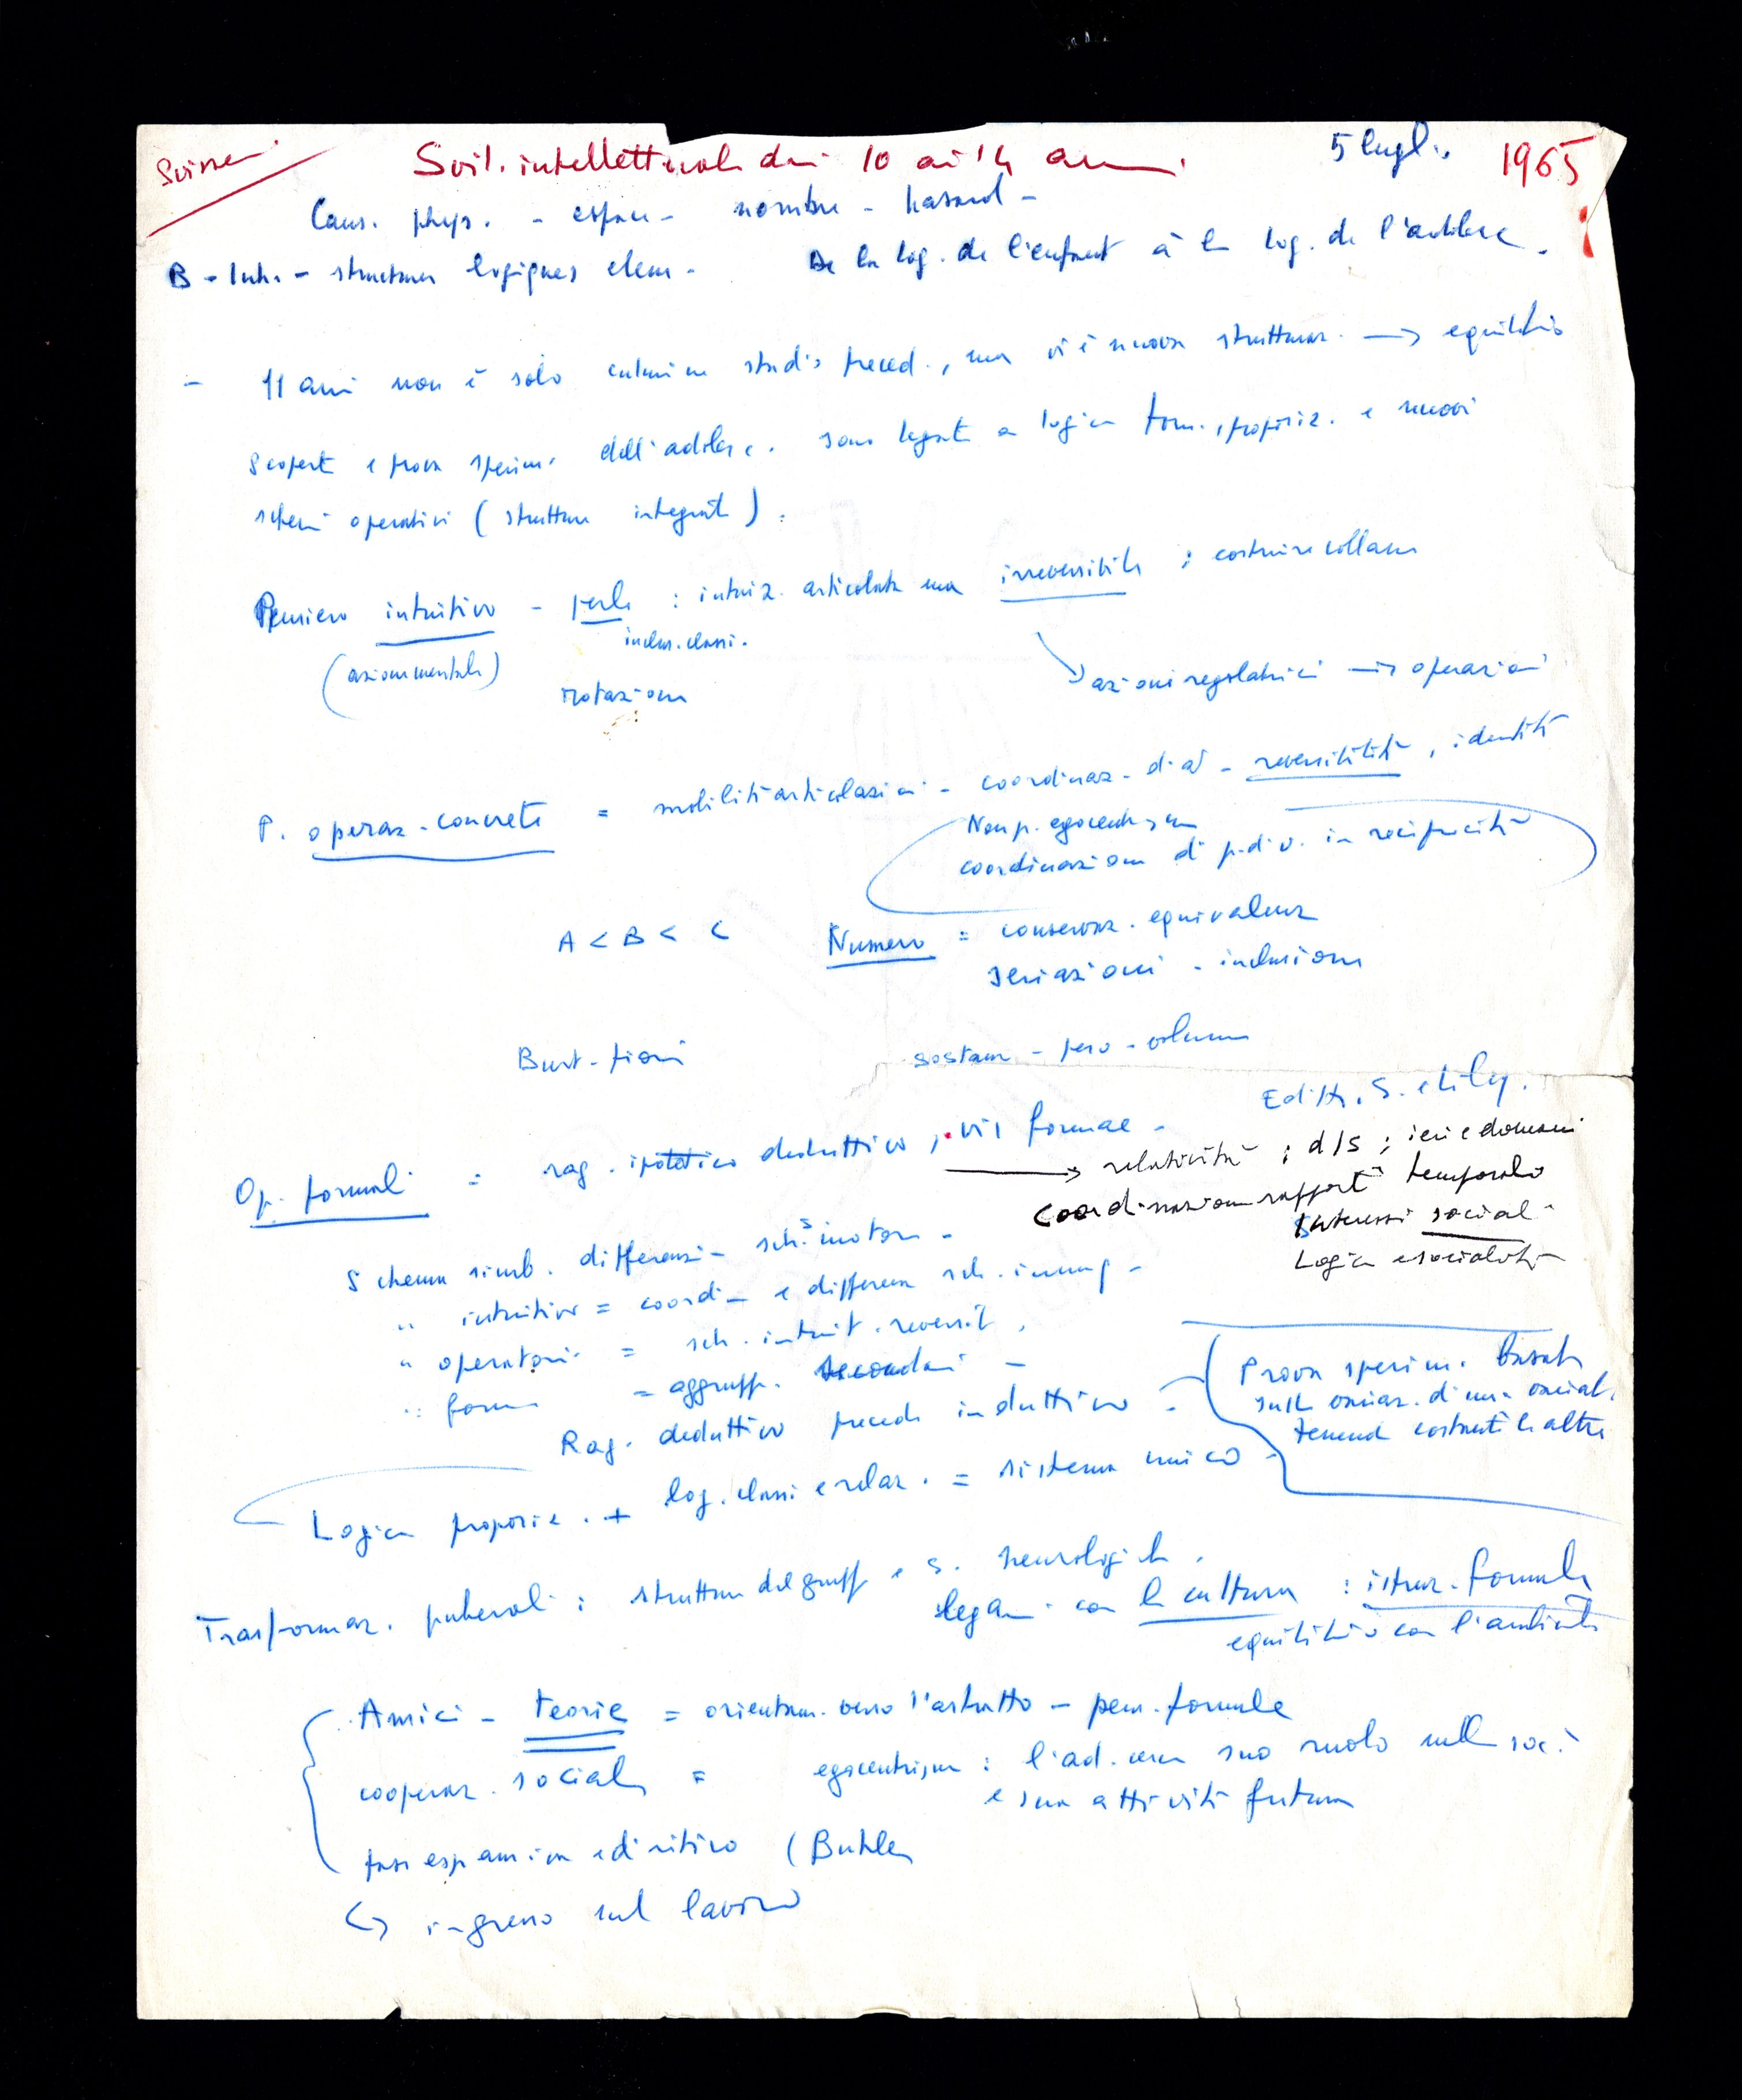 Svil. intellettuale dai 10 ai 14 anni.
5 luglio 1965
Caus. phys. - espace - nombre - hasard -
B - Inh. - structures logiques elem. - De la log. de l'enfant à la log. de l'adolesc.
- 11 anni non è solo culmine stadio preced., ma vi è nuova struttura. → equilibrio
scoperte e prova sperim. dell'adolesc. sono legate a logica form., proposiz. e nuovi
schemi operativi (strutture integrate).
Pensiero intuitivo - perle : intuiz. articolata ma irreversibile ; costruire collana
inclus. classi.
(azioni mentali)
rotazione
azioni regolatrici → operazioni
P. operaz. concrete = mobilità articolazioni - coordinaz. - reversibilità, identità
Non p. egocentrismo
coordinazione di p. di v. in reciprocità
A < B < C
Numero = conservaz. equivalenza
seriazioni - inclusione
Burt - fiori
sostanza - peso - volume
Edith, S. e Lily.
Op. formali = rag. ipotetico deduttivo, vis formae -
→ relatività ; d/s ; ieri e domani
Coordinazione rapporti temporali
Interessi sociali
Logica e socialità
Schema simb. differenzi- sch. s. motori -
" intuitivo = coord. - e differenz sch. immag -
" operatorio = sch. intuit. reversib.
" form = aggrupp. secondari -
Rag. deduttivo precede induttivo -
Prova sperim. basata
sulla variaz. di una variab.
tenendo costanti le altre
Logica proposiz. + log. classi e relaz. = sistema unico
Trasformaz. puberali : strutture del grupp e s. neurologiche.
legami con la cultura : istruz. formale
equilibrio con l'ambiente
Amici - teorie = orientam. verso l'astratto - pens. formale
cooperaz. sociale = egocentrismo : l'ad. cerca suo ruolo nella soc.
e sua attività futura
fasi espansione e di ritiro (Buhler
↳ ingresso nel lavoro